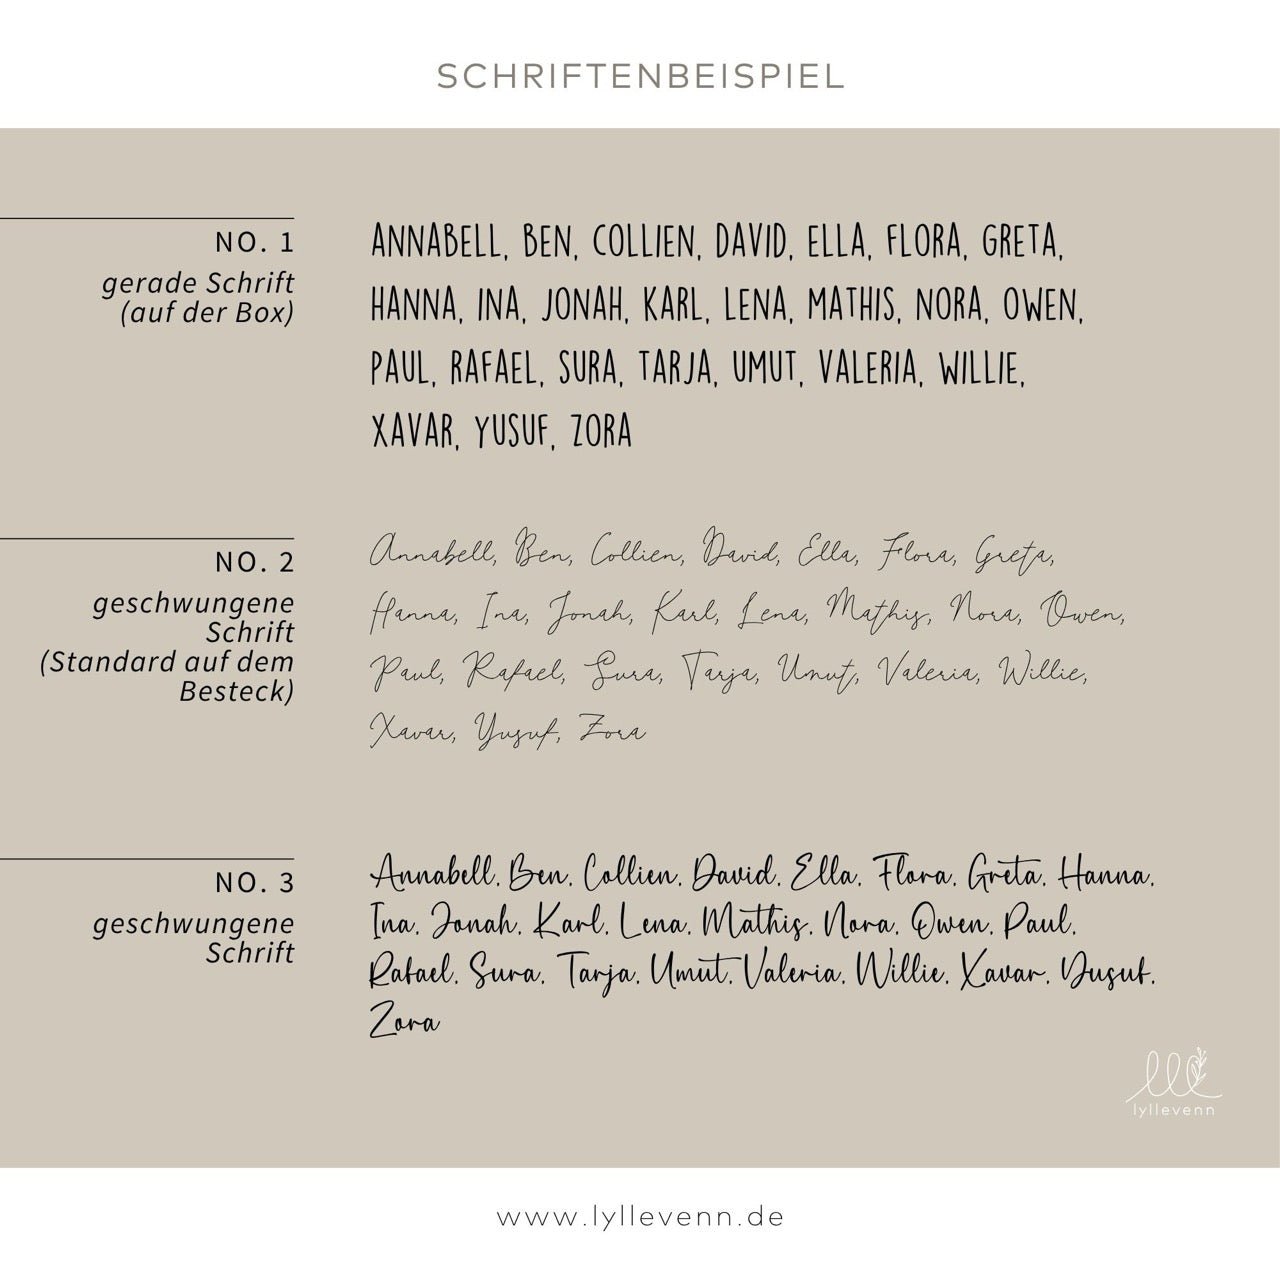 SCHRIFTENBEISPIEL
NO. 1
gerade Schrift
(auf der Box)
ANNABELL, BEN, COLLIEN, DAVID, ELLA, FLORA, GRETA,
HANNA, INA, JONAH, KARL, LENA, MATHIS, NORA, OWEN,
PAUL, RAFAEL, SURA, TARJA, UMUT, VALERIA, WILLIE,
XAVAR, YUSUF, ZORA
NO. 2
geschwungene
Schrift
(Standard auf dem
Besteck)
Annabell, Ben, Collien, David, Ella, Flora, Greta,
Hanna, Ina, Jonah, Karl, Lena, Mathis, Nora, Owen,
Paul, Rafael, Sura, Tarja, Umut, Valeria, Willie,
Xavar, Yusuf, Zora
NO. 3
geschwungene
Schrift
Annabell, Ben, Collien, David, Ella, Flora, Greta, Hanna,
Ina, Jonah, Karl, Lena, Mathis, Nora, Owen, Paul,
Rafael, Sura, Tarja, Umut, Valeria, Willie, Xavar, Yusuf,
Zora
lyllevenn
www.lyllevenn.de